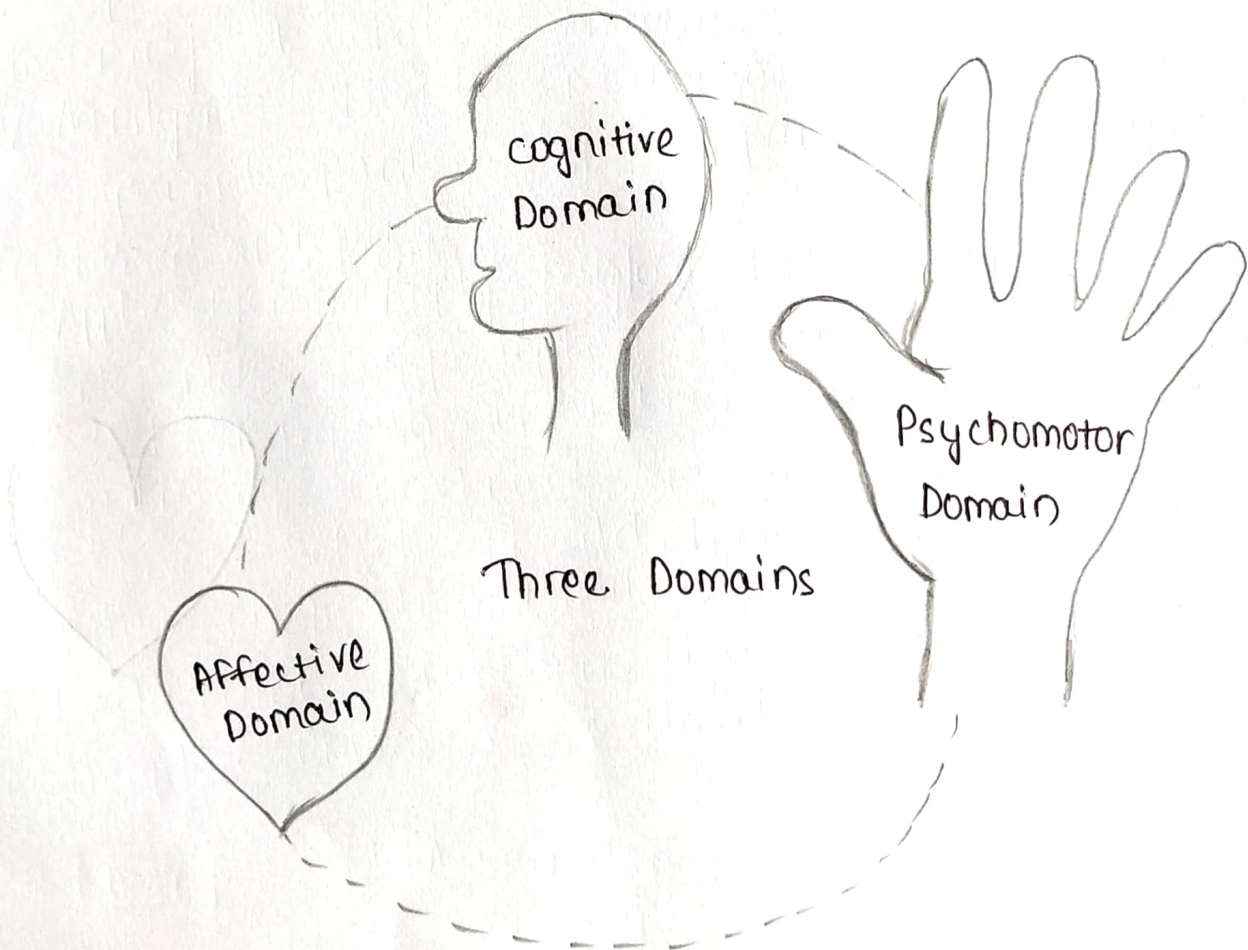 cognitive
Domain
Psychomotor
Domain
Three Domains
Affective
Domain